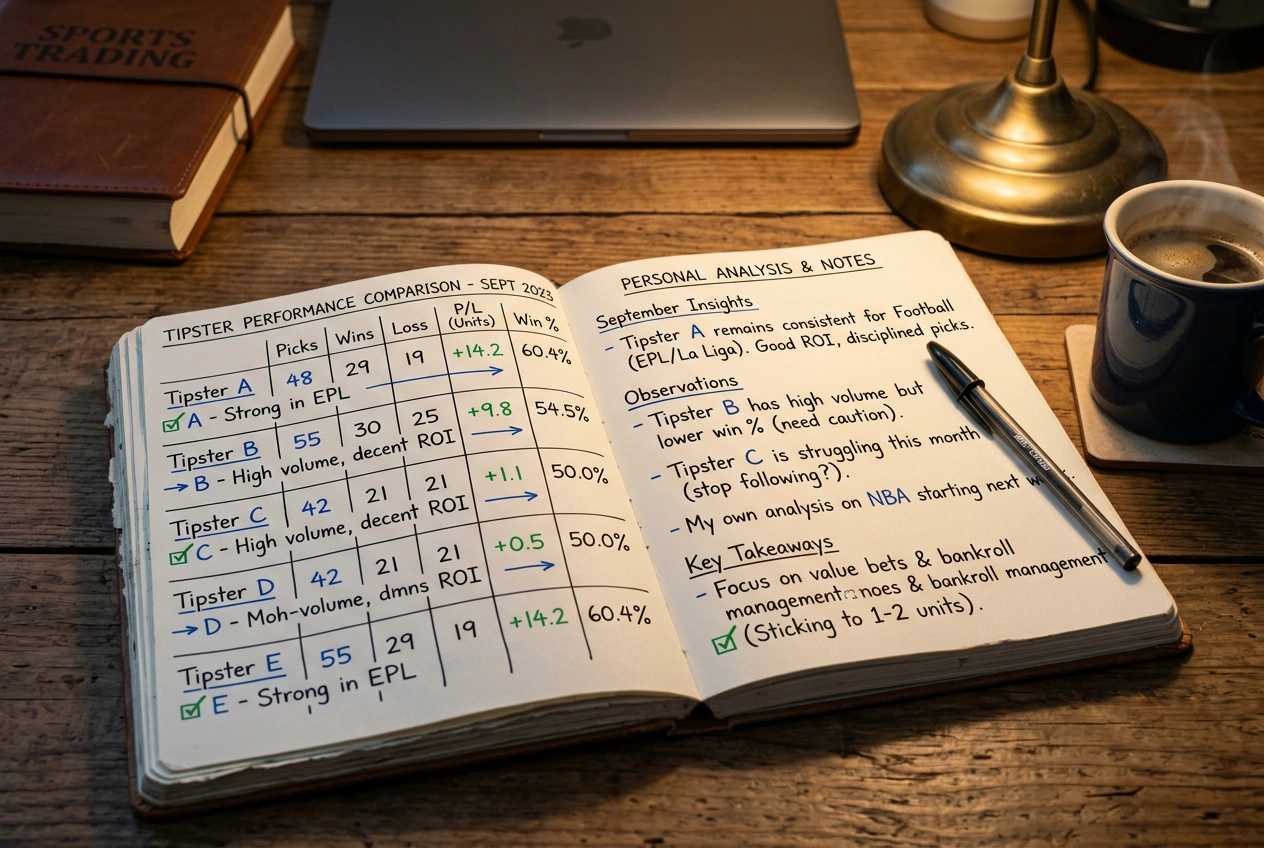 SPORTS
TRADING
TIPSTER PERFORMANCE COMPARISON - SEPT 2023
Picks Wins Loss P/L (Units) Win %
Tipster A 48 29 19 +14.2 60.4%
A - Strong in EPL
Tipster B 55 30 25 +9.8 54.5%
B - High volume, decent ROI
Tipster C 42 21 21 +1.1 50.0%
C - High volume, decent ROI
Tipster D 42 21 21 +0.5 50.0%
D - Moh-volume, dmns ROI
Tipster E 55 29 19 +14.2 60.4%
E - Strong in EPL
PERSONAL ANALYSIS & NOTES
September Insights
- Tipster A remains consistent for Football
(EPL/La Liga). Good ROI, disciplined picks.
Observations
- Tipster B has high volume but
lower win % (need caution).
- Tipster C is struggling this month
(stop following?).
- My own analysis on NBA starting next
Key Takeaways
- Focus on value bets & bankroll
management noes & bankroll management
(Sticking to 1-2 units).